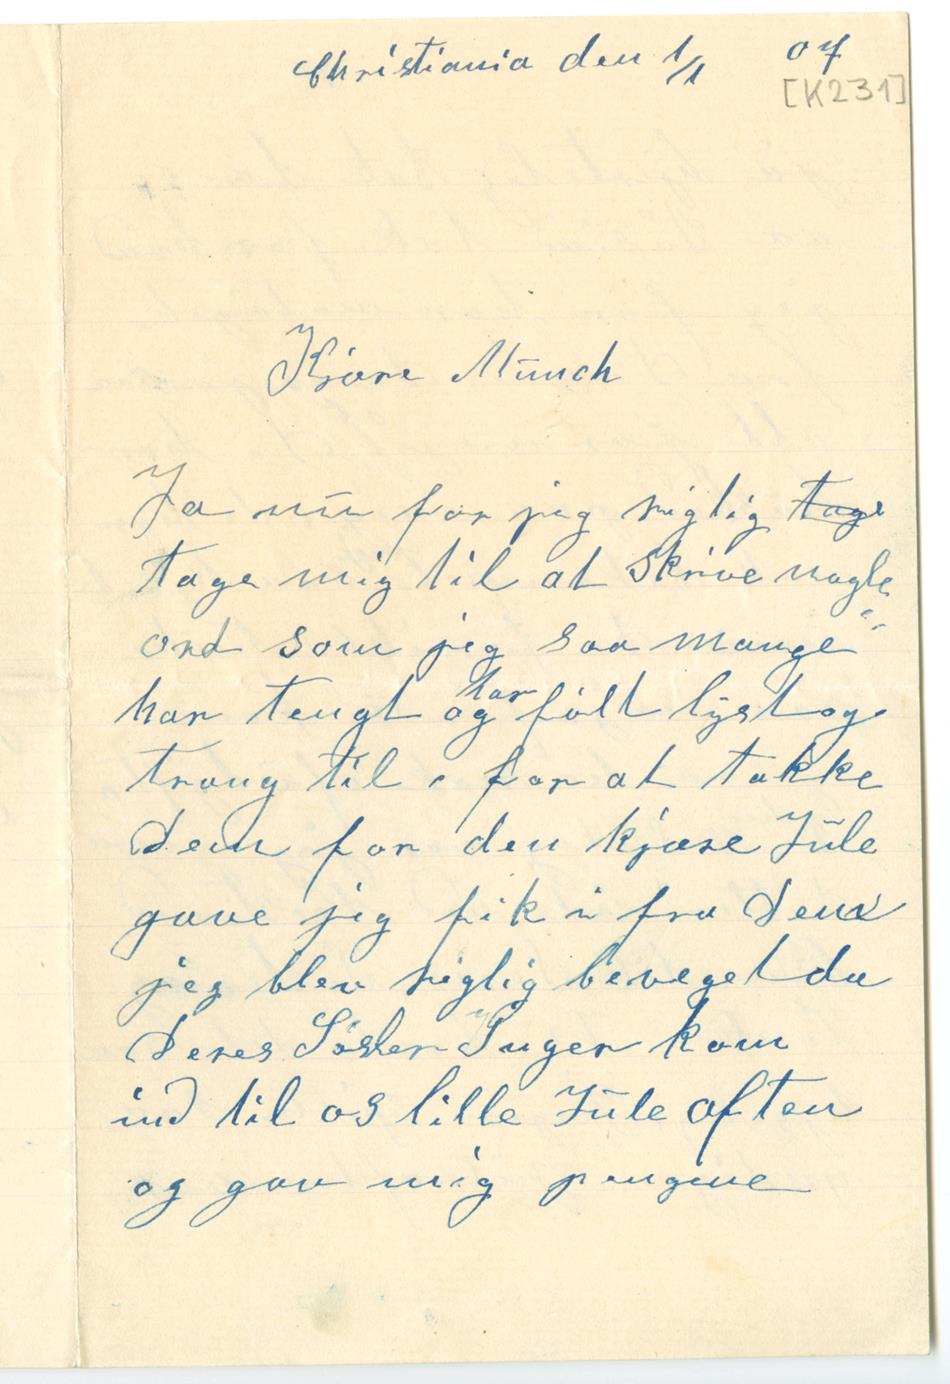 Christiania den 1/1 07
[K231]
Kjære Münch
Ja nu får jeg rigtig tage
tage mig til at skrive nogle
ord som jeg saa mange
har tengt og har følt lyst og
trang til, for at takke
Dem for den kjære Jule
gave jeg fik i fra Dem
jeg blev rigtig beveget da
Deres Søster Inger kom
ind til os lille Jule aften
og gav mig pengene